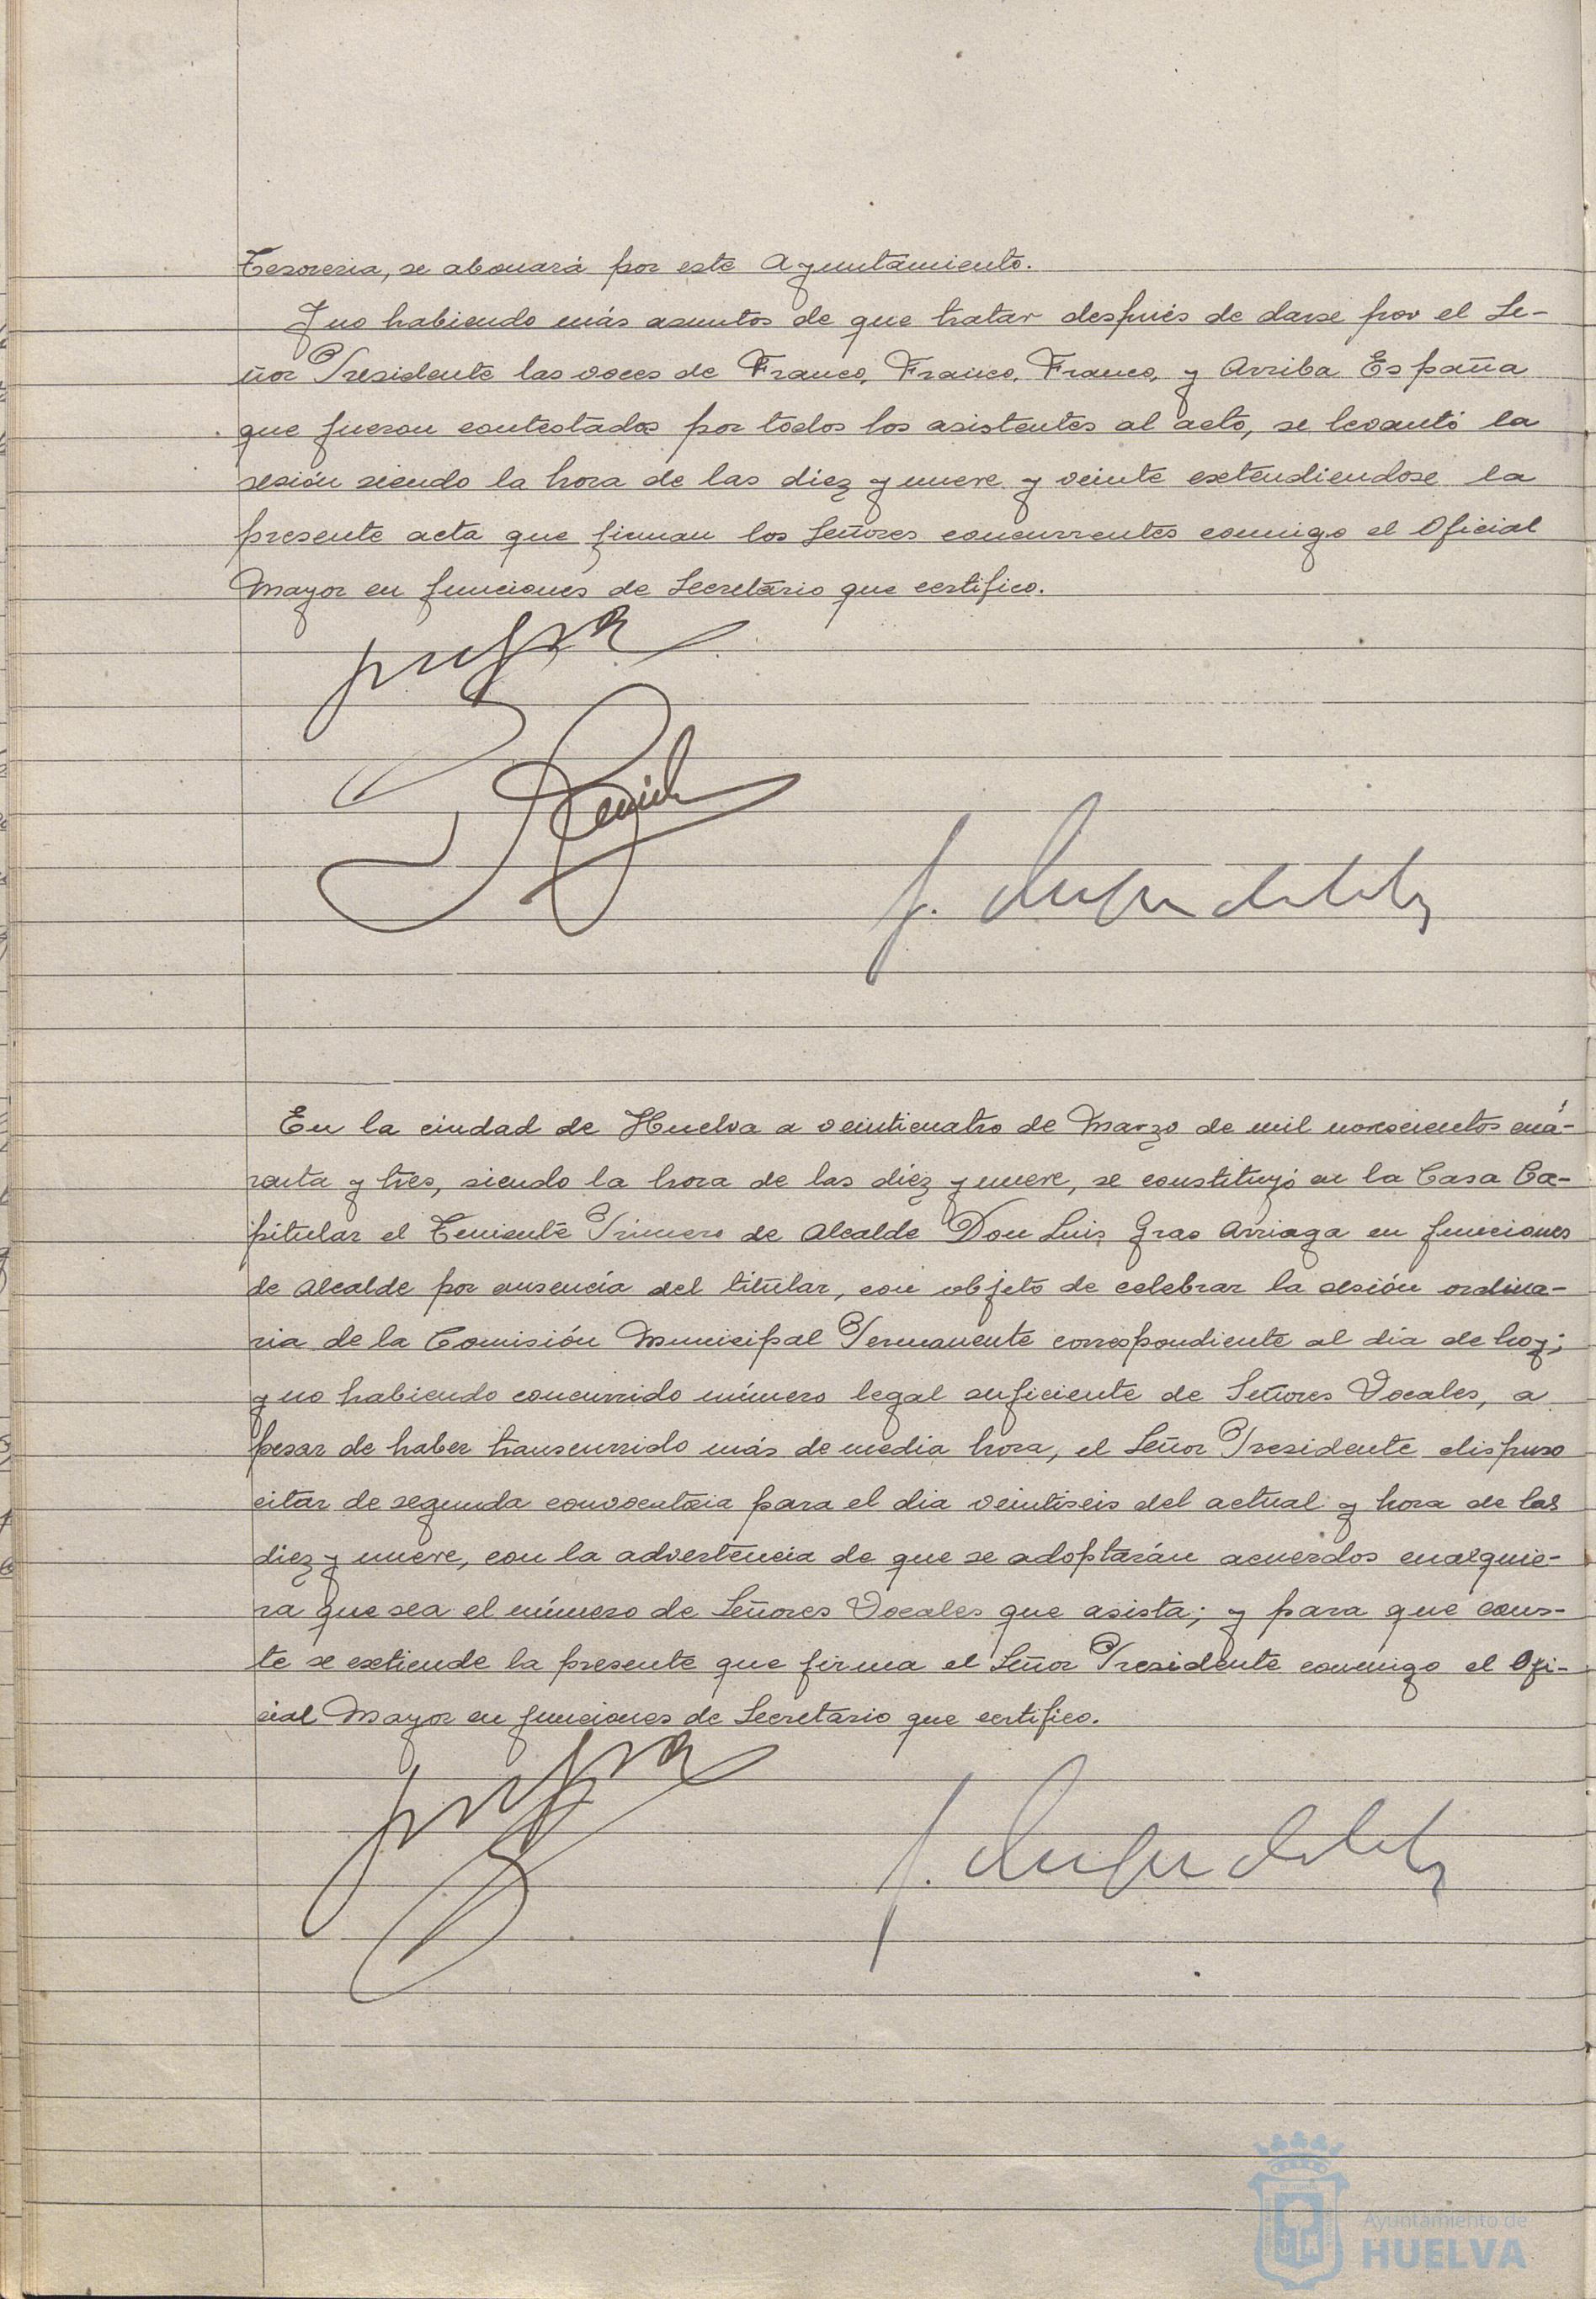 Tesoreria, se abonará por este Ayuntamiento.
Y no habiendo más asuntos de que tratar después de darse por el Se-
ñor Presidente las voces de Franco, Franco, Franco, y Arriba España
que fueron contestados por todos los asistentes al acto, se levantó la
sesión siendo la hora de las diez y nueve y veinte extendiendose la
presente acta que firman los Señores concurrentes conmigo el Oficial
Mayor en funciones de Secretario que certifico.
En la ciudad de Huelva a veinticuatro de Marzo de mil novecientos cuá-
renta y tres, siendo la hora de las diez y nueve, se constituyó en la Casa Ca-
pitular el Teniente Primero de Alcalde Don Luis Gras Arriaga en funciones
de Alcalde por ausencia del titular, con objeto de celebrar la sesión ordina-
ria de la Comisión Municipal Permanente correspondiente al día de hoy;
y no habiendo concurrido número legal suficiente de Señores Vocales, a
pesar de haber transcurrido más de media hora, el Señor Presidente dispuso
citar de segunda convocatoria para el dia veintiseis del actual y hora de las
diez y nueve, con la advertencia de que se adoptarán acuerdos cualquie-
ra que sea el número de Señores Vocales que asista; y para que cons-
te se extiende la presente que firma el Señor Presidente conmigo el Ofi-
cial Mayor en funciones de Secretario que certifico.
Ayuntamiento de
HUELVA